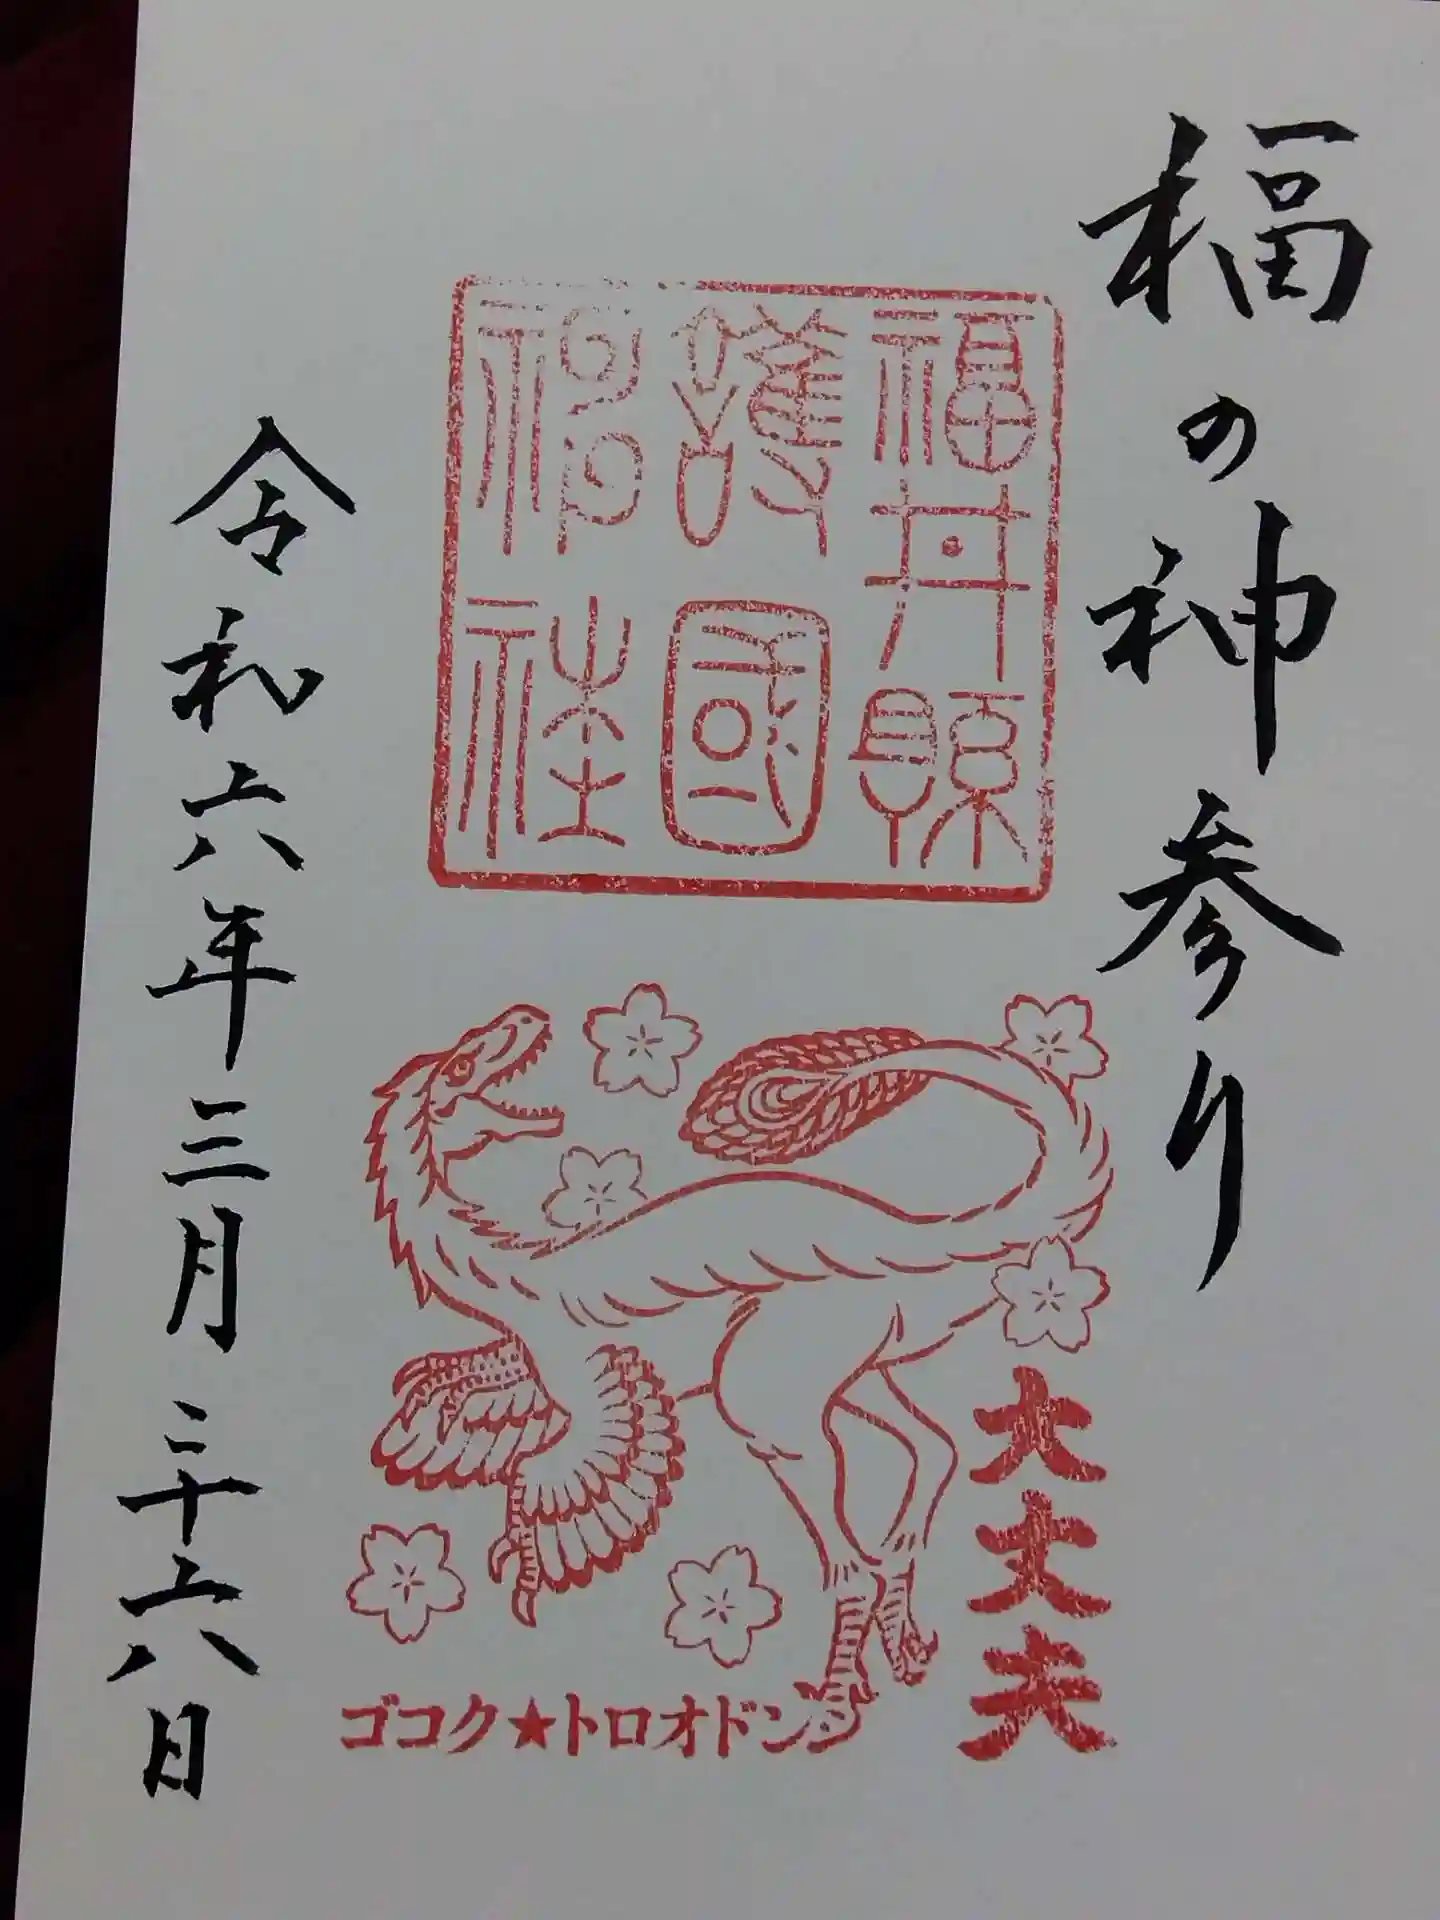 福の神参り
福井縣
護國
神社
大丈夫
ゴコク★トロオドン
令和六年三月二十六日